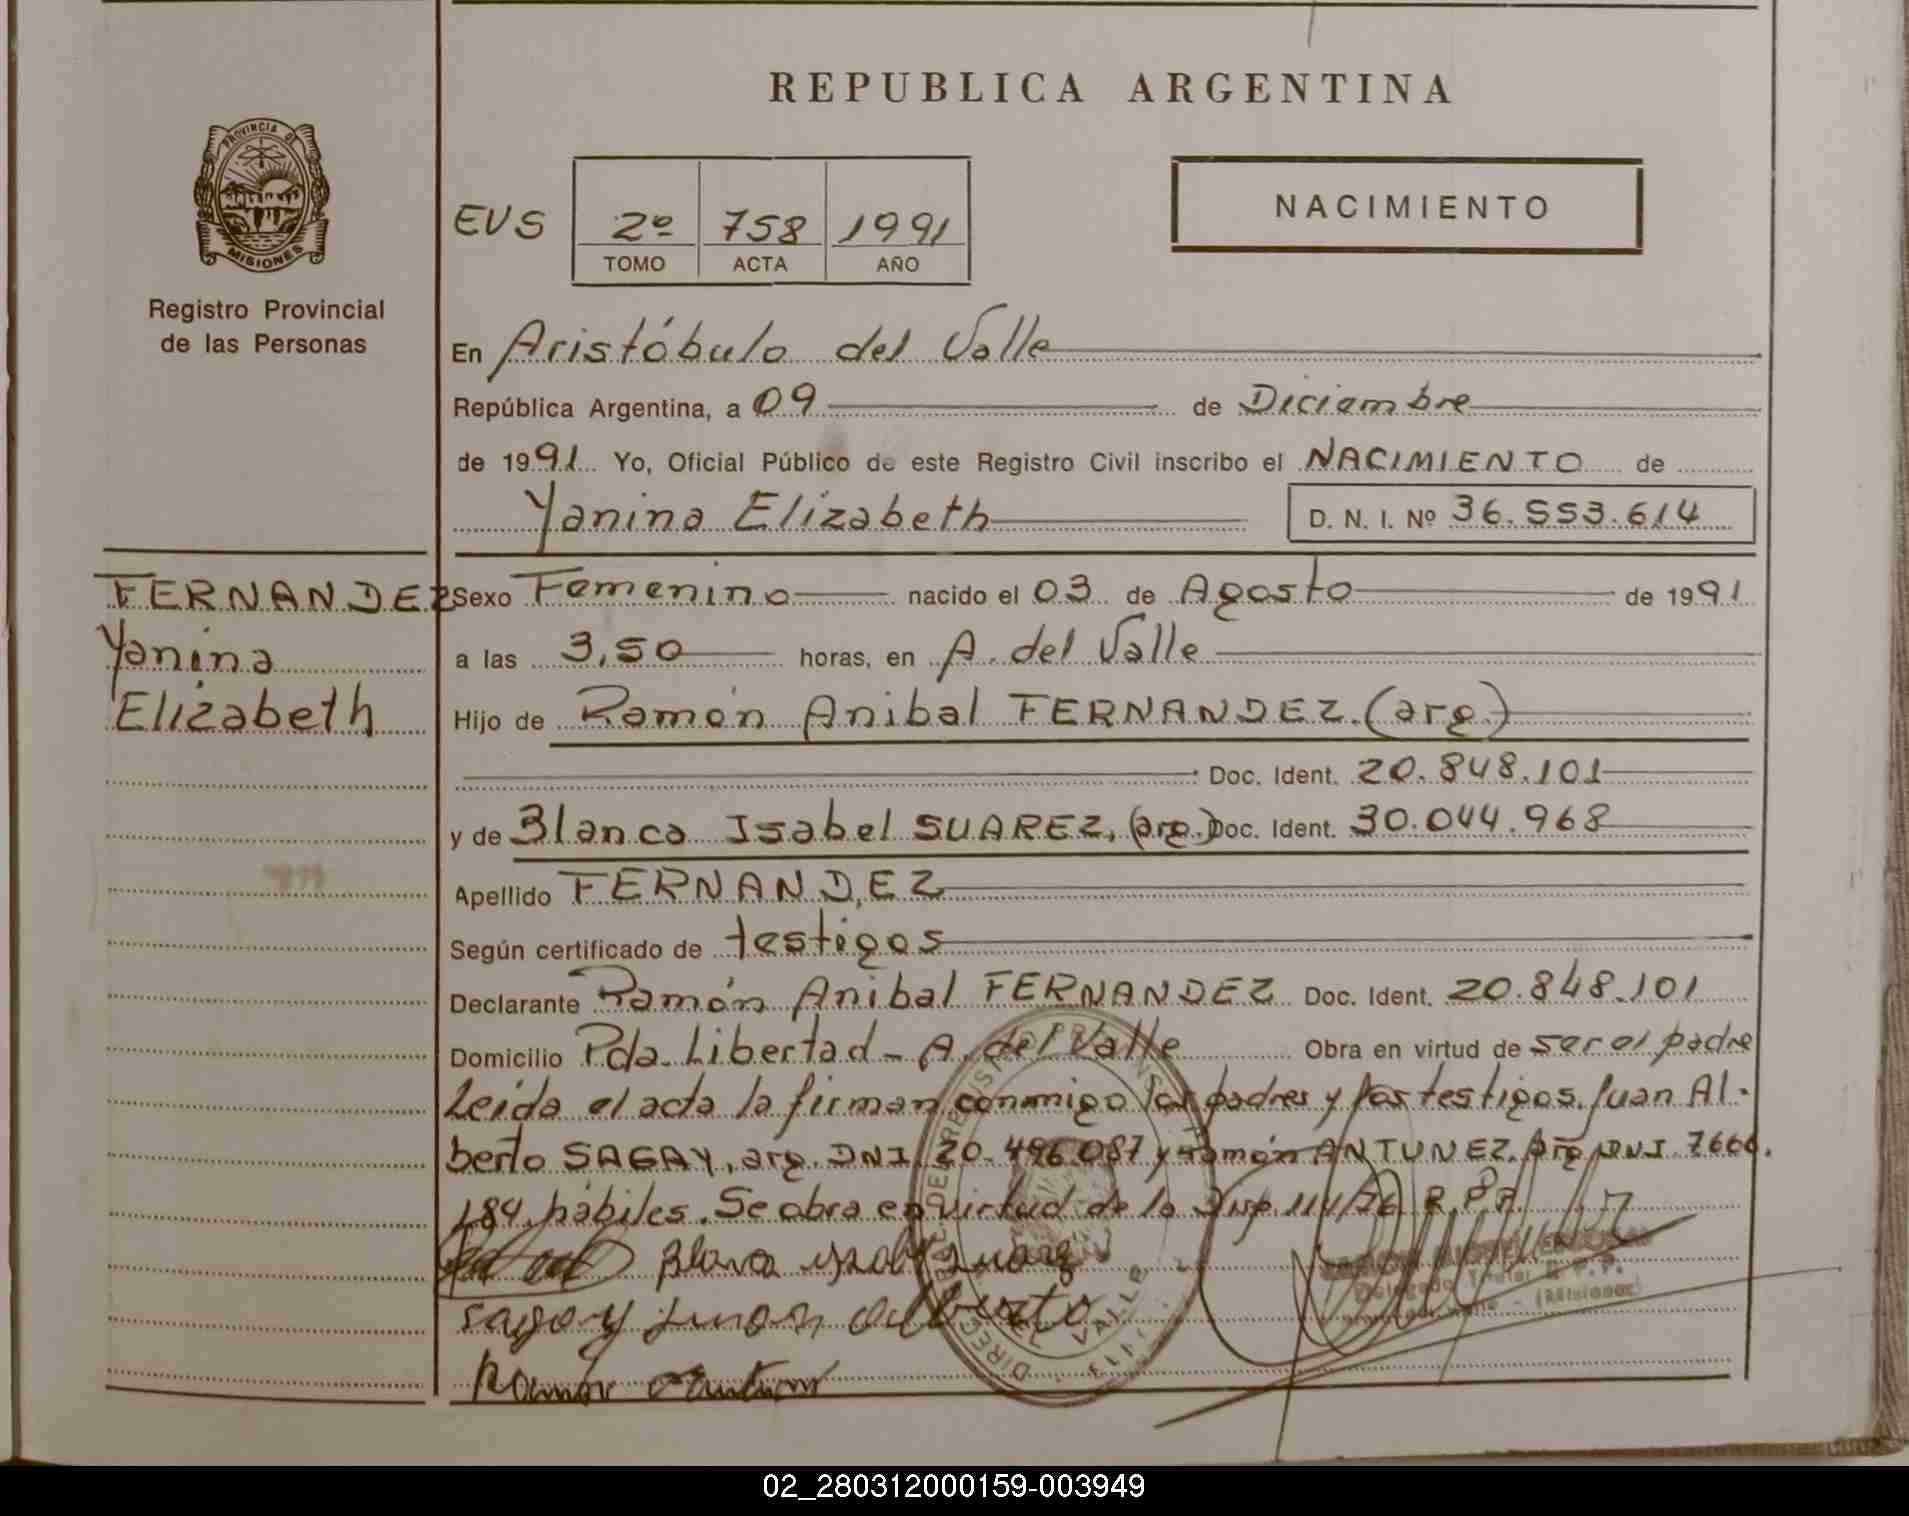 REPUBLICA ARGENTINA
PROVINCIA DE
MISIONES
Registro Provincial
de las Personas
EVS 2º 758 1991
TOMO ACTA AÑO
NACIMIENTO
En Aristóbulo del Valle
República Argentina, a 09 de Diciembre
de 1991 Yo, Oficial Público de este Registro Civil inscribo el NACIMIENTO de
Yanina Elizabeth D. N. I. Nº 36.553.614
FERNANDEZ
Yanina
Elizabeth
Sexo Femenino nacido el 03 de Agosto de 1991
a las 3,50 horas, en A. del Valle
Hijo de Ramón Anibal FERNANDEZ.(arg.)
Doc. Ident. 20.848.101
y de Blanca Isabel SUAREZ, (arg.) Doc. Ident. 30.044.968
Apellido FERNANDEZ
Según certificado de testigos
Declarante Ramón Anibal FERNANDEZ Doc. Ident. 20.848.101
Domicilio Pda. Libertad - A. del Valle Obra en virtud de ser el padre
Leida el acta la firman conmigo los padres y los testigos. Juan Al-
berto SAGAY, arg. DNI. 20.496.087 y Ramón ANTUNEZ. arg. DNI. 7666.
184. hábiles. Se obra en virtud de la Disp. 114/76 R.P.P.
Blanca Isabel Suarez
Sagay Juan Alberto
Ramón
02_280312000159-003949